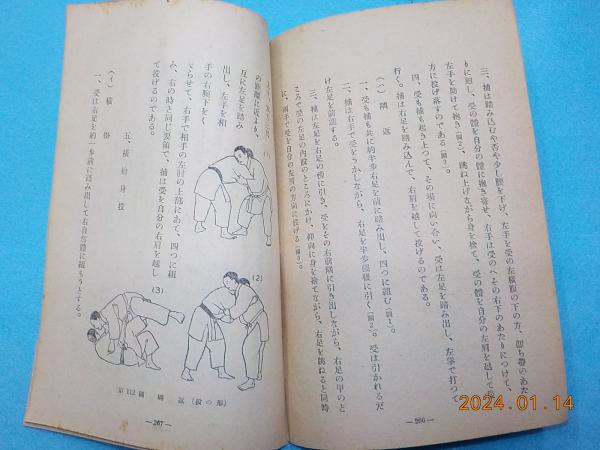 三、捕は踏み込むや否や少し腰を下げ、左手を受の左横腹の下の方、即ち帶のあた
りに廻し、受の體を自分の體に抱き寄せ、右手は受のへその右下のあたりにつけて、
左手を助けて抱き（圖2）、跳ね上げながら身を捨て、受の體を自分の左肩を越して後
方に投げ落すのである（圖3）。
四、受も捕も起き上つて、その場に向い合い、受は左足を踏み出し、左拳で打つて
行く。捕は右足を踏み込んで、右肩を越して投げるのである。
（ハ）隅返
一、受も捕も共に約半歩右足を前に踏み出し、四つに組む（圖1）。
二、捕は右手で受をうかしながら、右足を半歩後樣に引く（圖2）。受は引かれるだ
け左足を前進する。
三、捕は左足を右足の傍に引き、受をその右前隅に引き出しながら、右足の甲のと
ころで受の左足の内股のところにかけ、仰向に身を捨てながら、右足を跳ねると同時
に、兩手で受を自分の左肩の方向に投げる（圖3）。
— 266 —
の距離に近より、
互に左足を踏み
出し、左手を相
手の右腕下をく
ぐらせて、右手で相手の左肘の上部にあて、四つに組
み、右の時と同じ要領で、捕は受を自分の右肩を越し
て投げるのである。
五、橫捨身技
（イ）橫掛
一、受は右足を約一歩前に踏み出して右自然體に組もうとする。
(1)
(2)
(3)
第112圖 隅返（投の形）
— 267 —
2024.01.14